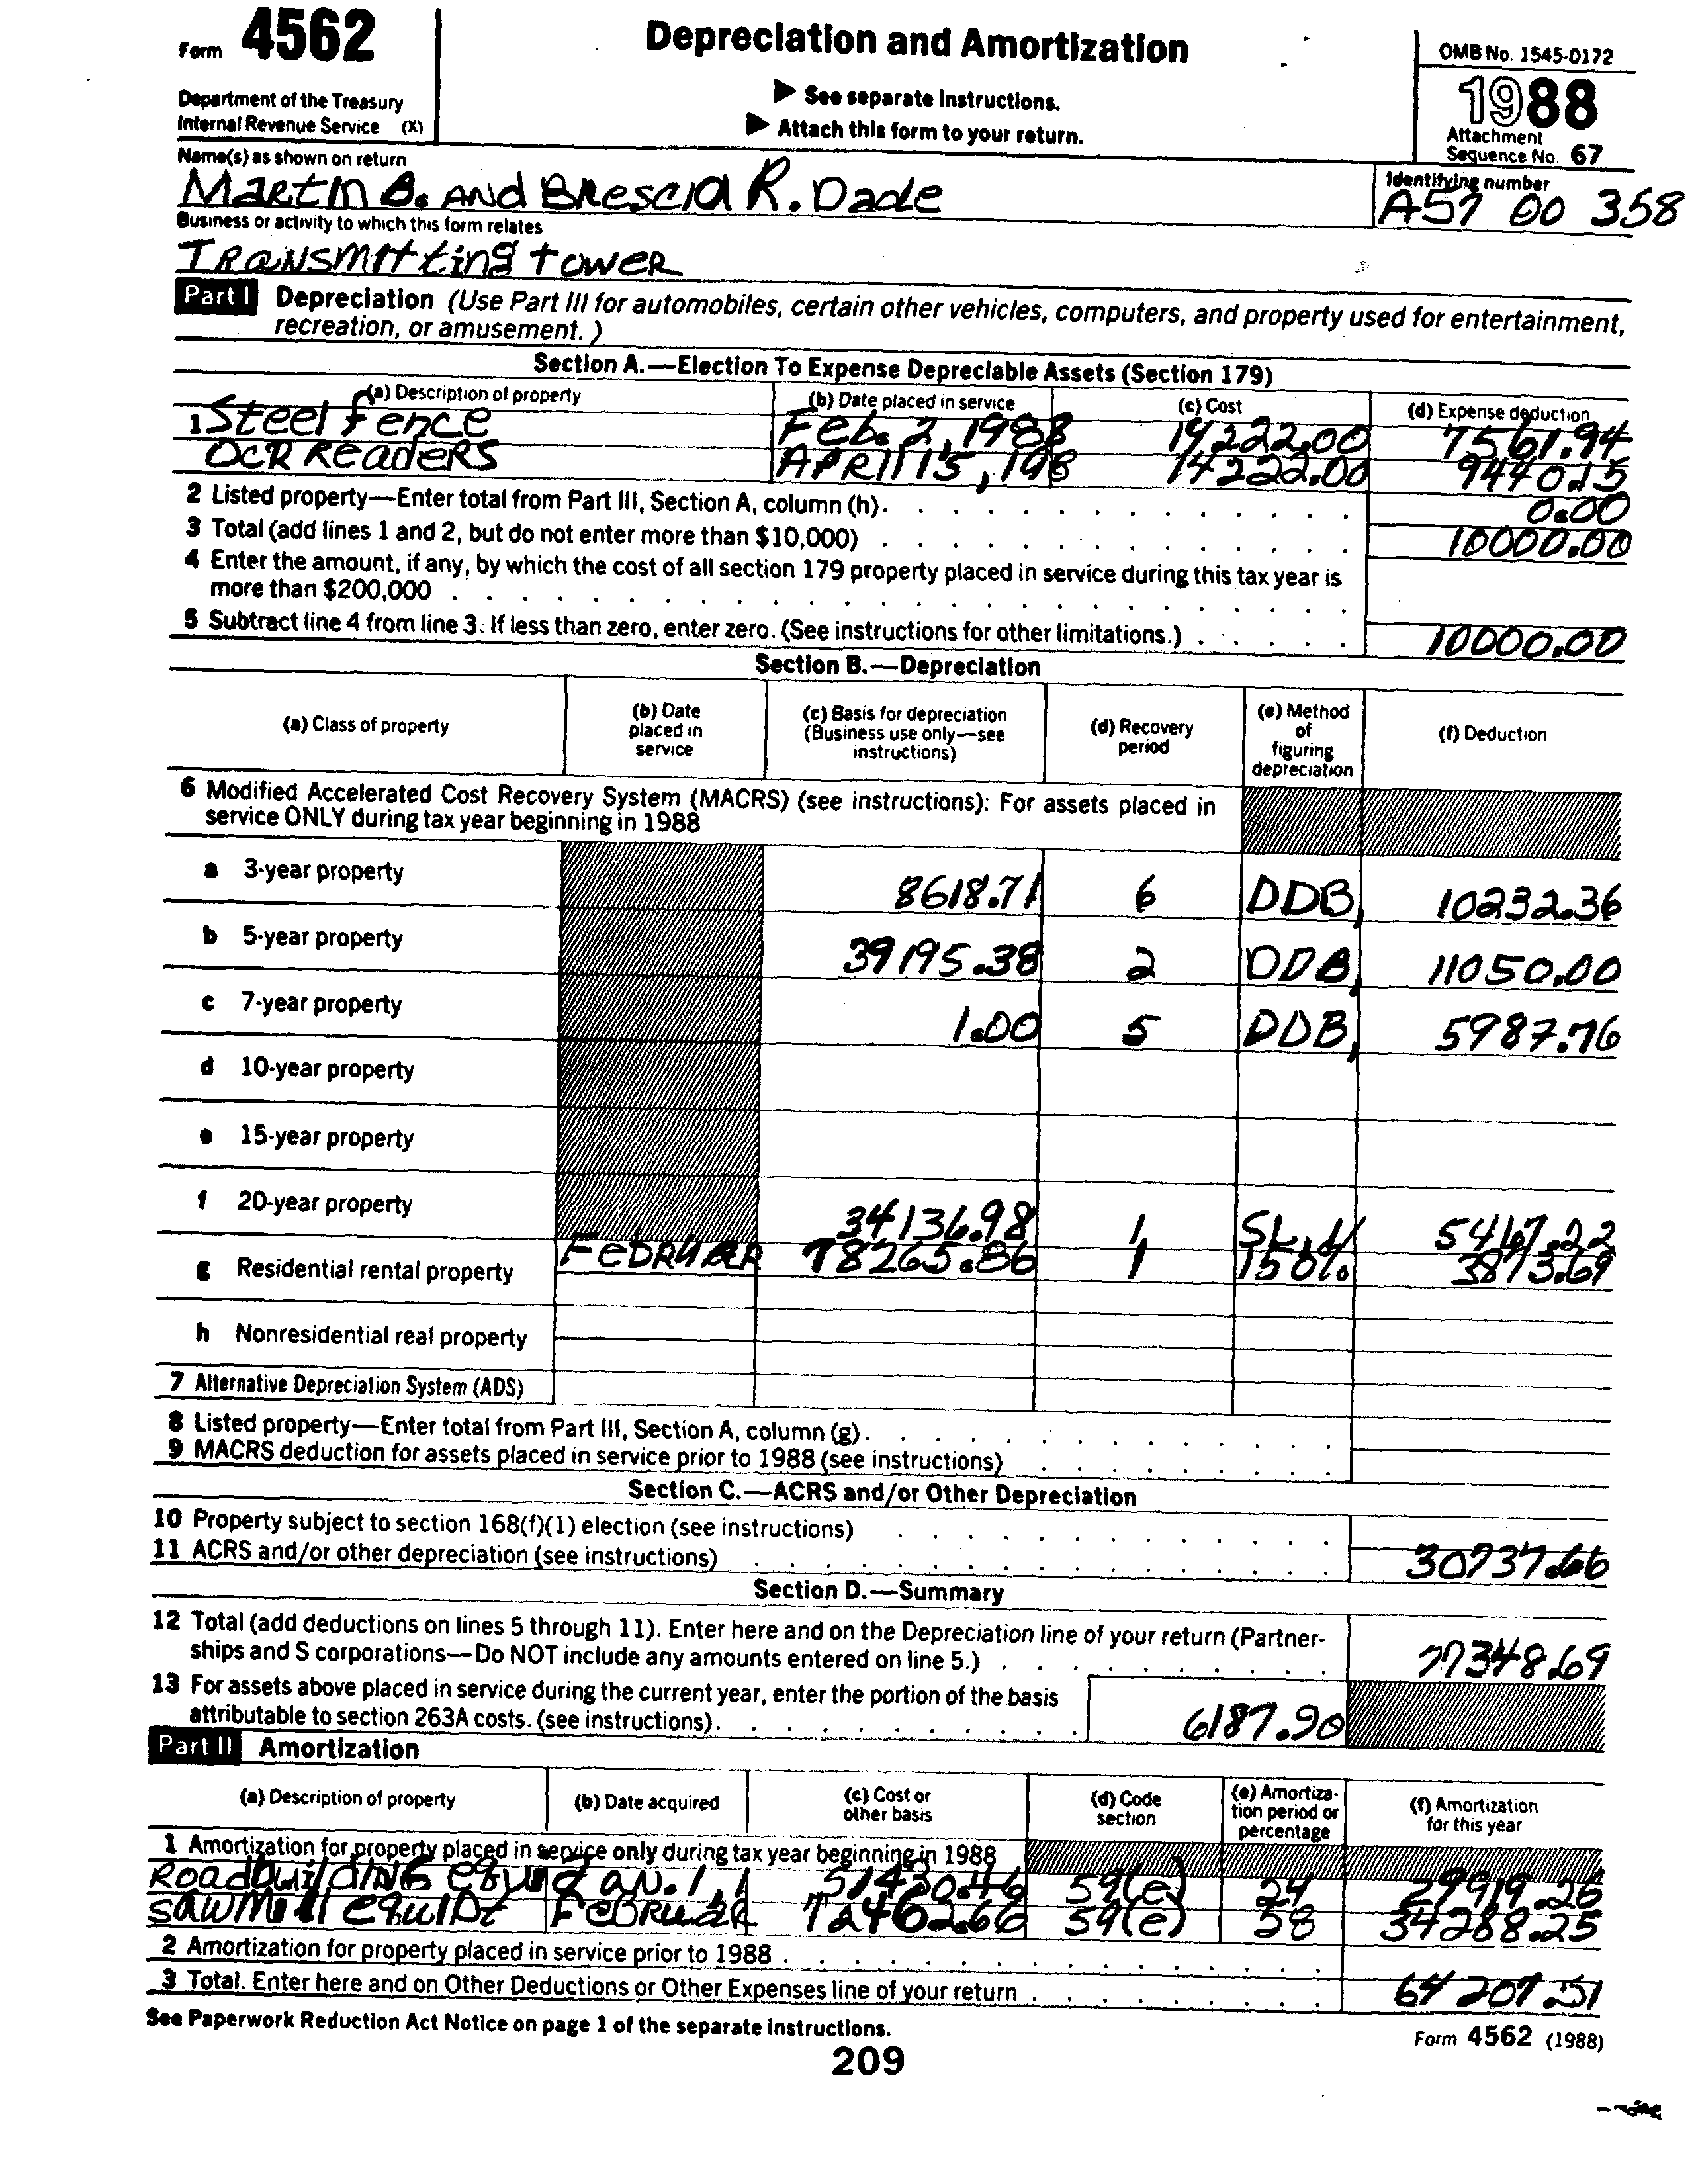 Form 4562
Depreciation and Amortization
OMB No. 1545-0172
1988
Department of the Treasury
Internal Revenue Service (X)
▶ See separate Instructions.
▶ Attach this form to your return.
Attachment
Sequence No. 67
Name(s) as shown on return
Martin B. AND Brescia R. Dade
Identifying number
A57 00 358
Business or activity to which this form relates
TRANSmitting tower
Part I Depreciation (Use Part III for automobiles, certain other vehicles, computers, and property used for entertainment,
recreation, or amusement.)
Section A.—Election To Expense Depreciable Assets (Section 179)
(a) Description of property (b) Date placed in service (c) Cost (d) Expense deduction
1 Steel fence Feb. 2, 1988 14222.00 7561.94
OCR ReadeRS APRIl 15, 198 14222.00 9440.15
2 Listed property—Enter total from Part III, Section A, column (h). 0.00
3 Total (add lines 1 and 2, but do not enter more than $10,000) 10000.00
4 Enter the amount, if any, by which the cost of all section 179 property placed in service during this tax year is
more than $200,000
5 Subtract line 4 from line 3. If less than zero, enter zero. (See instructions for other limitations.) 10000.00
Section B.—Depreciation
(a) Class of property (b) Date placed in service (c) Basis for depreciation (Business use only—see instructions) (d) Recovery period (e) Method of figuring depreciation (f) Deduction
6 Modified Accelerated Cost Recovery System (MACRS) (see instructions): For assets placed in
service ONLY during tax year beginning in 1988
a 3-year property 8618.71 6 DDB, 10232.36
b 5-year property 39195.38 2 DDB, 11050.00
c 7-year property 1.00 5 DDB, 5987.76
d 10-year property
e 15-year property
f 20-year property 34136.98 1 SL, H 5467.22
g Residential rental property FebRuaR 78265.86 1 150% 3873.69
h Nonresidential real property
7 Alternative Depreciation System (ADS)
8 Listed property—Enter total from Part III, Section A, column (g).
9 MACRS deduction for assets placed in service prior to 1988 (see instructions)
Section C.—ACRS and/or Other Depreciation
10 Property subject to section 168(f)(1) election (see instructions)
11 ACRS and/or other depreciation (see instructions) 30737.66
Section D.—Summary
12 Total (add deductions on lines 5 through 11). Enter here and on the Depreciation line of your return (Partner-
ships and S corporations—Do NOT include any amounts entered on line 5.) 77348.69
13 For assets above placed in service during the current year, enter the portion of the basis
attributable to section 263A costs. (see instructions). 6187.90
Part II Amortization
(a) Description of property (b) Date acquired (c) Cost or other basis (d) Code section (e) Amortiza-tion period or percentage (f) Amortization for this year
1 Amortization for property placed in service only during tax year beginning in 1988
RoadbuildING equip Jan. 1, 1 51430.46 59(e) 24 29919.26
sawmill equipt FebRuaR 72462.66 59(e) 58 34288.25
2 Amortization for property placed in service prior to 1988
3 Total. Enter here and on Other Deductions or Other Expenses line of your return 64207.51
See Paperwork Reduction Act Notice on page 1 of the separate Instructions.
Form 4562 (1988)
209